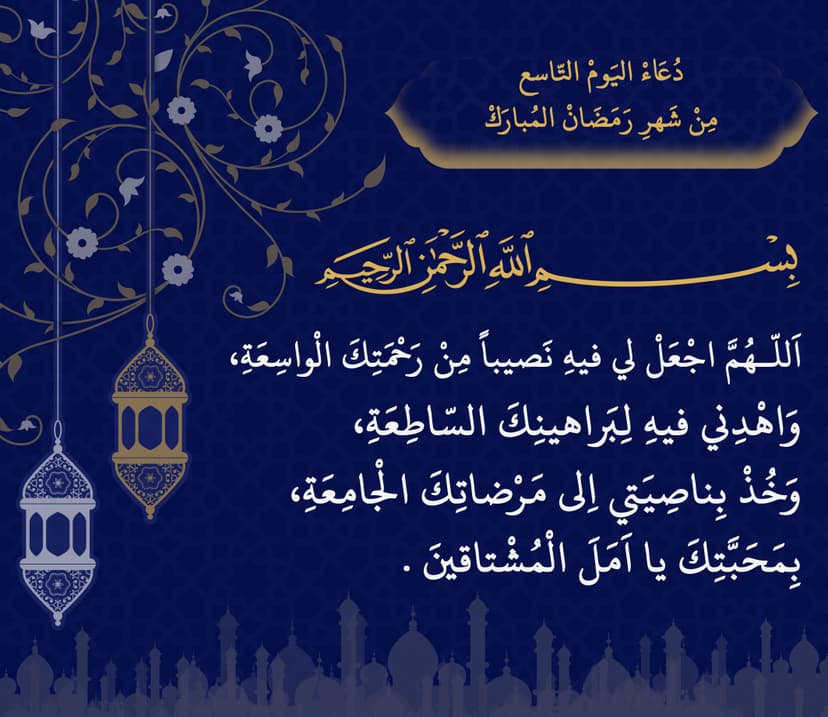 دُعَاءْ اليَومْ التّاسع
مِنْ شَهرِ رَمَضَانْ المُبارَكْ
بِسْمِ اللَّهِ الرَّحْمَٰنِ الرَّحِيمِ
اَللّـهُمَّ اجْعَلْ لي فيهِ نَصيباً مِنْ رَحْمَتِكَ الْواسِعَةِ،
وَاهْدِني فيهِ لِبَراهينِكَ السّاطِعَةِ،
وَخُذْ بِناصِيَتي اِلى مَرْضاتِكَ الْجامِعَةِ،
بِمَحَبَّتِكَ يا اَمَلَ الْمُشْتاقينَ .